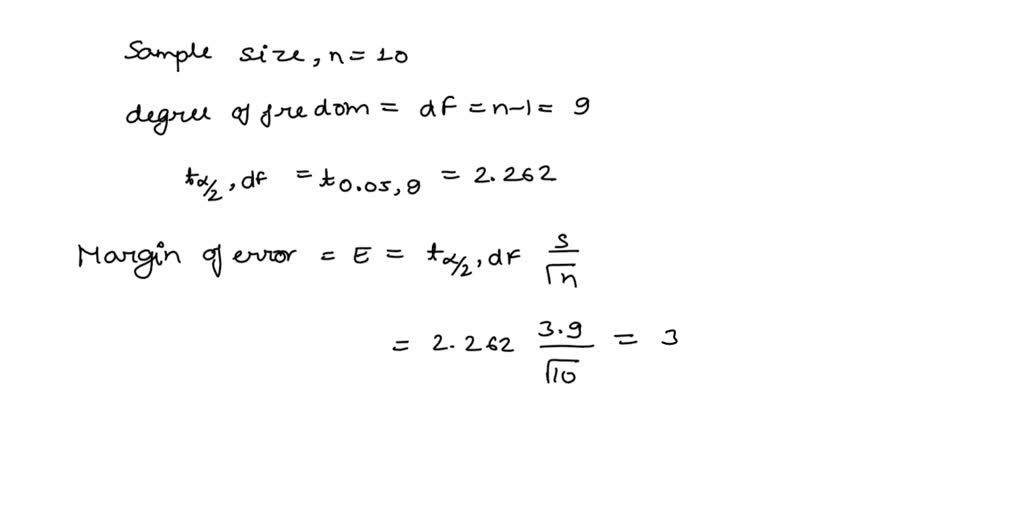 Sample size, n = 10
degree of fredom = dF = n-1 = 9
tα/2, dF = t0.05, 9 = 2.262
Margin of error = E = tα/2, dF s/√n
= 2.262 3.9/√10 = 3